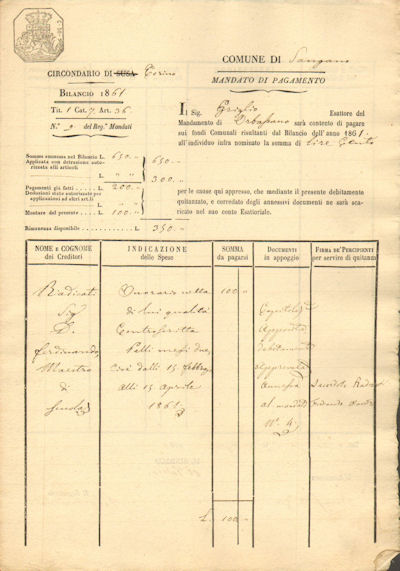 COMUNE DI Sangano
CIRCONDARIO DI SUSA Torino
MANDATO DI PAGAMENTO
BILANCIO 1861
Tit. 1 Cat. 7 Art. 36
N.° 2 del Reg.° Mandati
Il Sig. Griglio Esattore del
Mandamento di Orbassano sarà contento di pagare
sui fondi Comunali risultanti dal Bilancio dell' anno 1861.
all'individuo infra nominato la somma di lire Cento
Somma ammessa nel Bilancio L. 650 "
Applicata con detrazione auto-
rizzata alli articoli L. " "
650 "
300 "
Pagamenti già fatti L. 200 "
Deduzioni state autorizzate per
applicazioni ad altri art.li L. " "
Montare del presente L. 100 "
Rimanenza disponibile L. 350 "
per le cause qui appresso, che mediante il presente debitamente
quitanzato, e corredato degli annessivi documenti ne sarà
scaricato nel suo conto Esattoriale.
NOME E COGNOME
dei Creditori
INDICAZIONE
delle Spese
SOMMA
da pagarsi
DOCUMENTI
in appoggio
FIRMA DE' PERCIPIENTI
per servire di quitanza
Radicati
Sig.
D.
Ferdinando
Maestro
di
Scuola
Onorario nella
di lui qualità
Controscritta
Palli mesi due,
Cioè dalli 15 febbr.
alli 15 Aprile
1861
100 "
Capitolaz.
apposita
debitamente
approvata
annessa
al mandato
N. 4
L. 100 "